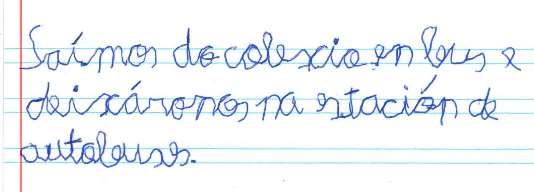 Saímos do colexio en bus e
deixáronos na estación de
autobuses.